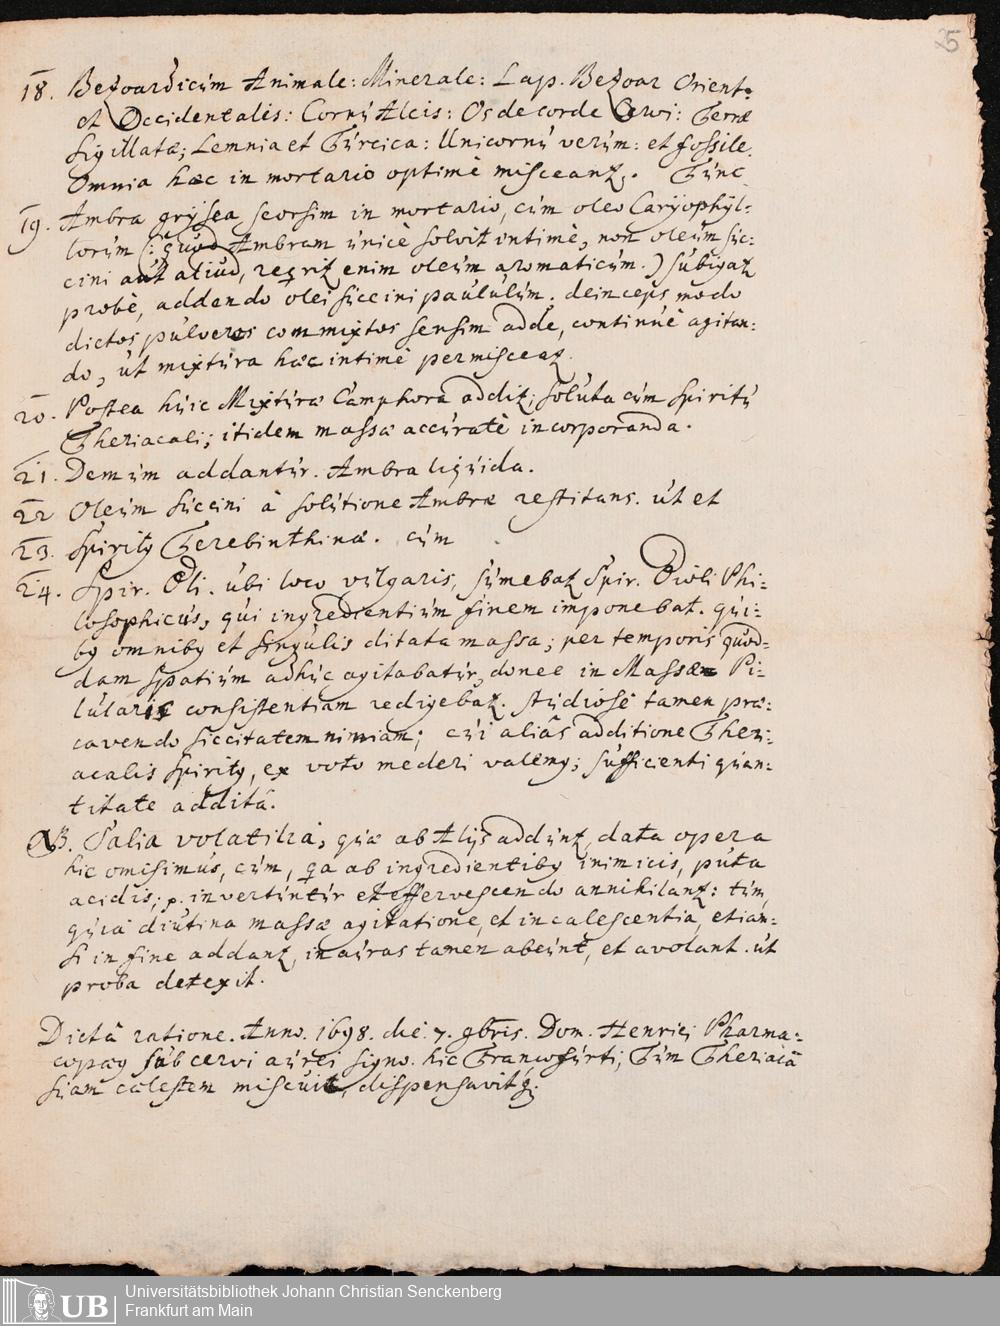 25
18. Bezoardicum Animale: Minerale: Lap. Bezoar Orient.
et Occidentalis: Cornu Alcis: Os de corde Cervi: Terræ
Sigillatæ; Lemnia et Turcica: Unicornu verum: et fossile.
Omnia hæc in mortario optimè misceantz. Tunc
19. Ambra grysea seorsim in mortario, cum oleo Caryophyl-
lorum (: quod Ambram unicè solvit intimè, non oleum suc-
cini aut aliud, reqritz enim oleum aromaticum.) subigatz
probè, addendo olei succini paululum; deinceps modo
dictos pulveres commixtos sensim adde, continuè agitan-
do, ut mixtura hæc intimè permisceatz.
20. Postea huic Mixturæ Camphora additz; soluta cum Spiritu
Theriacali; itidem massæ accuratè incorporanda.
21. Demum addantur. Ambra liquida.
22 Oleum succini à solutione Ambræ restitans. ut et
23. Spiritus Terebinthinæ. cum
24. Spir. Oli. ubi loco vulgaris, sumebatz Spir. Vitrioli Phi-
losophicus, qui ingredientium finem imponebat. qui-
bus omnibus et singulis ditata massa; per temporis quod-
dam spatium adhuc agitabatur, donec in Massæ Pi-
lularis consistentiam redigebatz. studiosè tamen præ-
cavendo siccitatem nimiam; cui aliàs additione Theri-
acalis Spiritus, ex voto mederi valemus; sufficienti quan-
titate additâ.
NB. Salia volatilia, quæ ab Alijs adduntz, data opera
hic omisimus, cum, qa ab ingredientibus inimicis, puta
acidis, p. invertuntur et effervescendo annihilantz: tum,
quia diutina massæ agitatione, et incalescentia, etiam-
si in fine addantz, in auras tamen abeunt, et avolant. ut
proba detexit.
Dictâ ratione. Anno. 1698. die. 7. 9bris. Dom. Henrici Pharma-
copæus sub cervi aurei signo. hic Francofurti; Tum Theriacã
suam cælestem miscuit, dispensavitq.
UB
Universitätsbibliothek Johann Christian Senckenberg
Frankfurt am Main